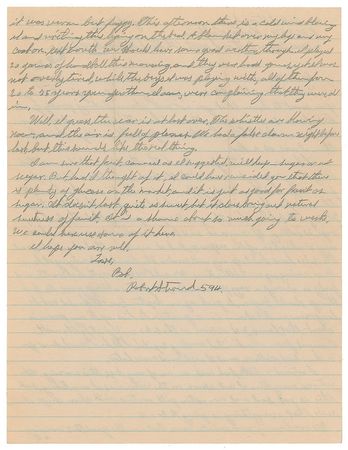 it was warm but foggy. This afternoon there is a cold wind blowing
and writing this lying on the bed. A blanket over my legs and my
coat on, but north we should have some good weather, though I played
20 games of handball this morning, and they were hard games, yet I was
not overly tired, while the boys I was playing with, all of them from
20 to 25 years younger than I am, were complaining that they were all
in.
Well, I guess the war is at last over. The whistles are blowing
now, and the air is full of planes. We had a false alarm a night before
last, but this sounds like the real thing.
I am sure that fruit canned as I suggested will keep - sugar or not
sugar. But had I thought of it, I could have reminded you that there
is plenty of glucose on the market, and it is just as good for fruit as
sugar. It doesn't taste quite as sweet but it does bring out natural
sweetness of fruit. It's a shame about so much going to waste.
We could have use some of it here.
I hope you are well.
Love,
Bob.
Robert Stroud 594